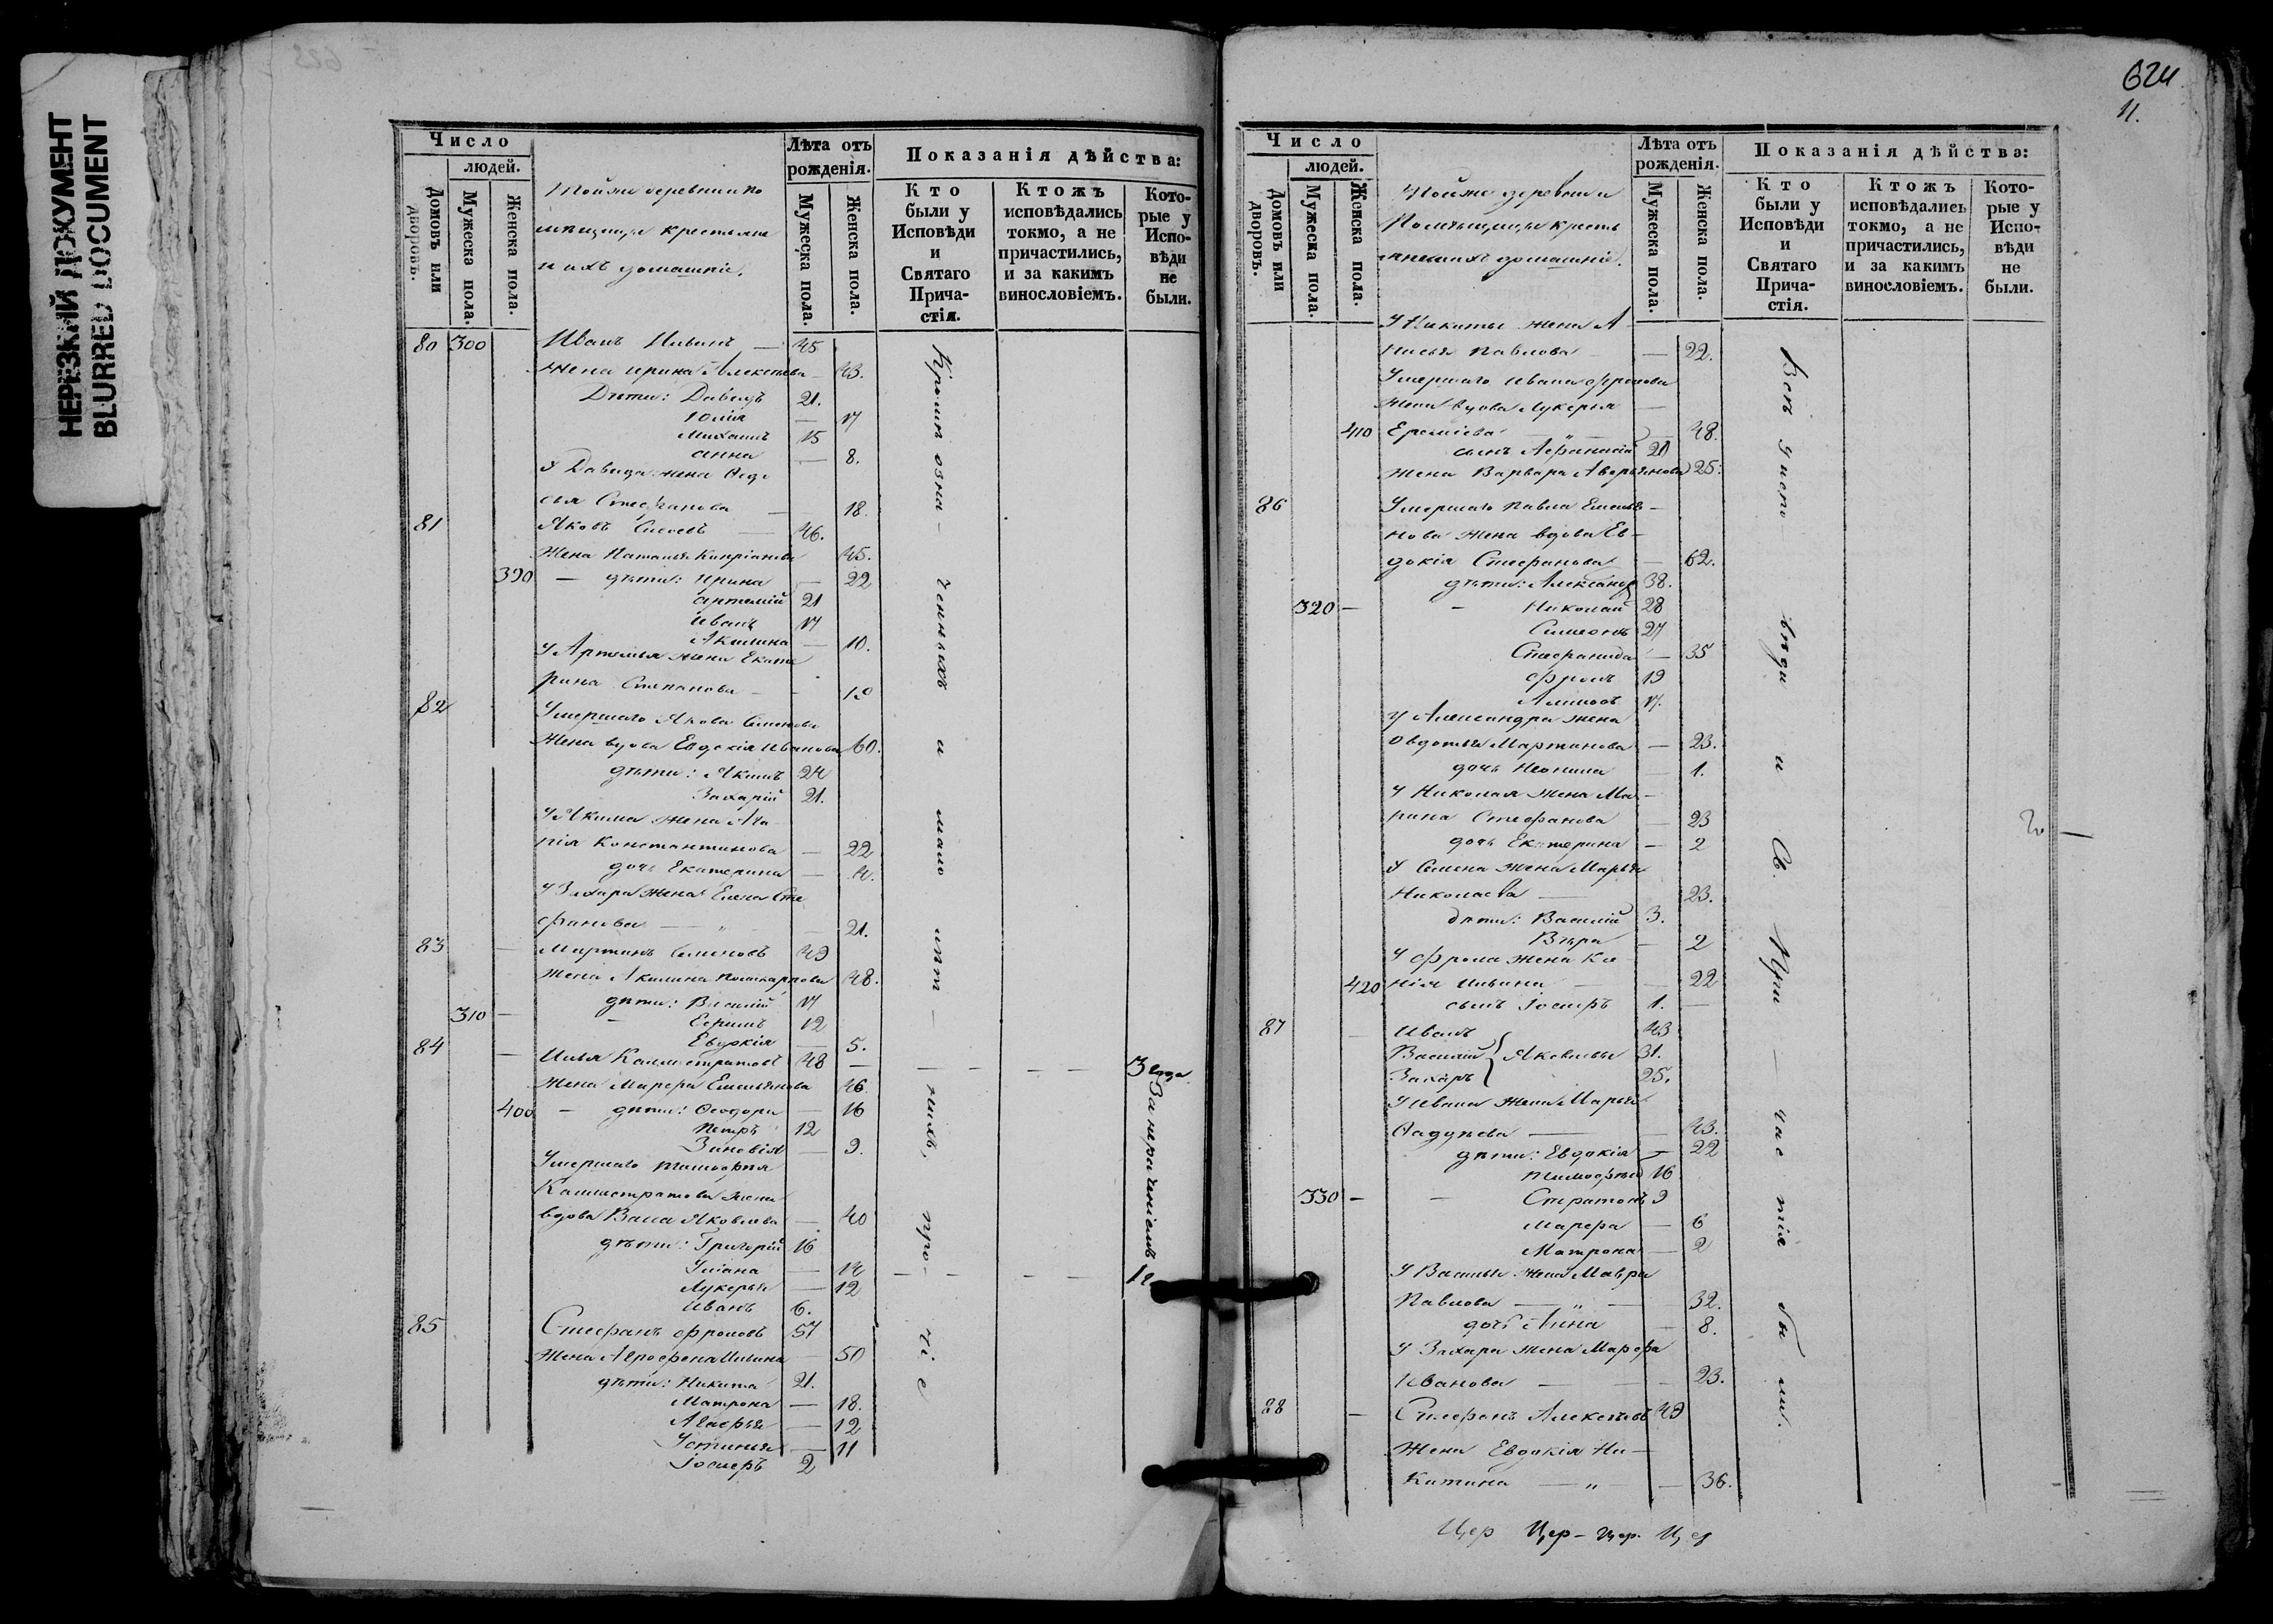 НЕРЕЗКИЙ ДОКУМЕНТ
BLURRED DOCUMENT
Число
людей.
Домовъ или дворовъ.
Мужеска пола.
Женска пола.
Тойже деревни по
мѣщицы крестьяне
и ихъ домашніе.
Лѣта отъ рожденія.
Мужеска пола.
Женска пола.
Показанія дѣйства:
Кто были у Исповѣди и Святаго Причастія.
Ктожъ исповѣдались токмо, а не причастились, и за какимъ винословіемъ.
Которые у Исповѣди не были.
80 300 Иванъ — 45
Жена Ирина Алексѣева 43.
Дѣти: Давидъ 21.
Юлія — 17
Михаилъ 15
Анна — 8.
У Давида жена Ѳедо
сья Стефанова — 18.
81 Яковъ — 46.
Жена Наталья Кипріанова 45.
390 — дѣти: Ирина — 22
Артемій 21
Иванъ 17
Акилина — 10.
У Артемья жена Екате
рина Степанова — 19
82 Умершаго Якова Семенова
Жена вдова Евдокія Иванова 60.
дѣти: Якимъ 24
Захарій 21.
У Якима жена Ага
пія Константинова — 22
дочь Екатерина — 4.
У Захара жена Елена Сте
фанова — 21.
83 — Мартинъ Семеновъ 49
Жена Акилина Поликарпова 48.
дѣти: Василій 17
310 — Ефимъ 12
Евдокія — 5.
84 — Илья Каллистратовъ 48 — 3 года
Жена Марѳа Емельянова 46
400 — дѣти: Ѳеодора — 16
Петръ 12
Зиновія — 9.
Умершаго Тимофея
Каллистратова жена
вдова Васса Яковлева — 40
дѣти: Григорій 16
Уліана — 14
Лукерья — 12
Иванъ 6.
85 Стефанъ Фроловъ 57
Жена Агрофена Ильина — 50
дѣти: Никита 21.
Матрона — 18.
Агафья — 12
Устинья — 11
Іосифъ 2
Кромѣ озна-
ченныхъ
и
мало
лѣт-
нихъ,
про-
чіе
За нерачениемъ
624
11.
Число
людей.
Домовъ или дворовъ.
Мужеска пола.
Женска пола.
Тойже деревни и
Помѣщицы кресть
яне и ихъ домашніе.
Лѣта отъ рожденія.
Мужеска пола.
Женска пола.
Показанія дѣйства:
Кто были у Исповѣди и Святаго Причастія.
Ктожъ исповѣдались токмо, а не причастились, и за какимъ винословіемъ.
Которые у Исповѣди не были.
У Никиты жена А-
нисья Павлова — 22.
Умершаго Ивана Фролова
Жена вдова Лукерья —
410 Еремѣева — 48.
сынъ Афанасій 20
Жена Варвара Аверьянова 25.
86 Умершаго Павла Емелья-
нова жена вдова Ев-
докія Стефанова — 62.
дѣти: Александръ 38.
320 — Николай 28
Симеонъ 27
Стефанида — 35
Фролъ 19
17.
У Александра жена
Овдотья Мартинова — 23.
дочь Неонила — 1.
У Николая жена Ма-
рина Стефанова — 23
дочь Екатерина — 2
У Семена жена Марья
Николаева — 23.
дѣти: Василій 3.
Вѣра — 2
У Фрола жена Ксе-
420 нія Ильина — 22
сынъ Іосифъ 1. —
87 — Иванъ 43
Василій } Яковлевы 31.
Захаръ 25.
У Ивана жена Марья
Фадѣева — 43.
дѣти: Евдокія — 22
Тимофей 16
330 — Стратонъ 9
Марѳа — 6
Матрона — 2
У Василья жена Мавра
Павлова — 32.
дочь Анна — 8.
У Захара жена Марѳа
Иванова — 23.
88 — Стефанъ Алексѣевъ 49
Жена Евдокія Ни-
китина — 36.
Всѣ
у испо-
вѣди
и
Св.
При-
час
тія
бы
ли.
Цер Цер- Цер. Цер